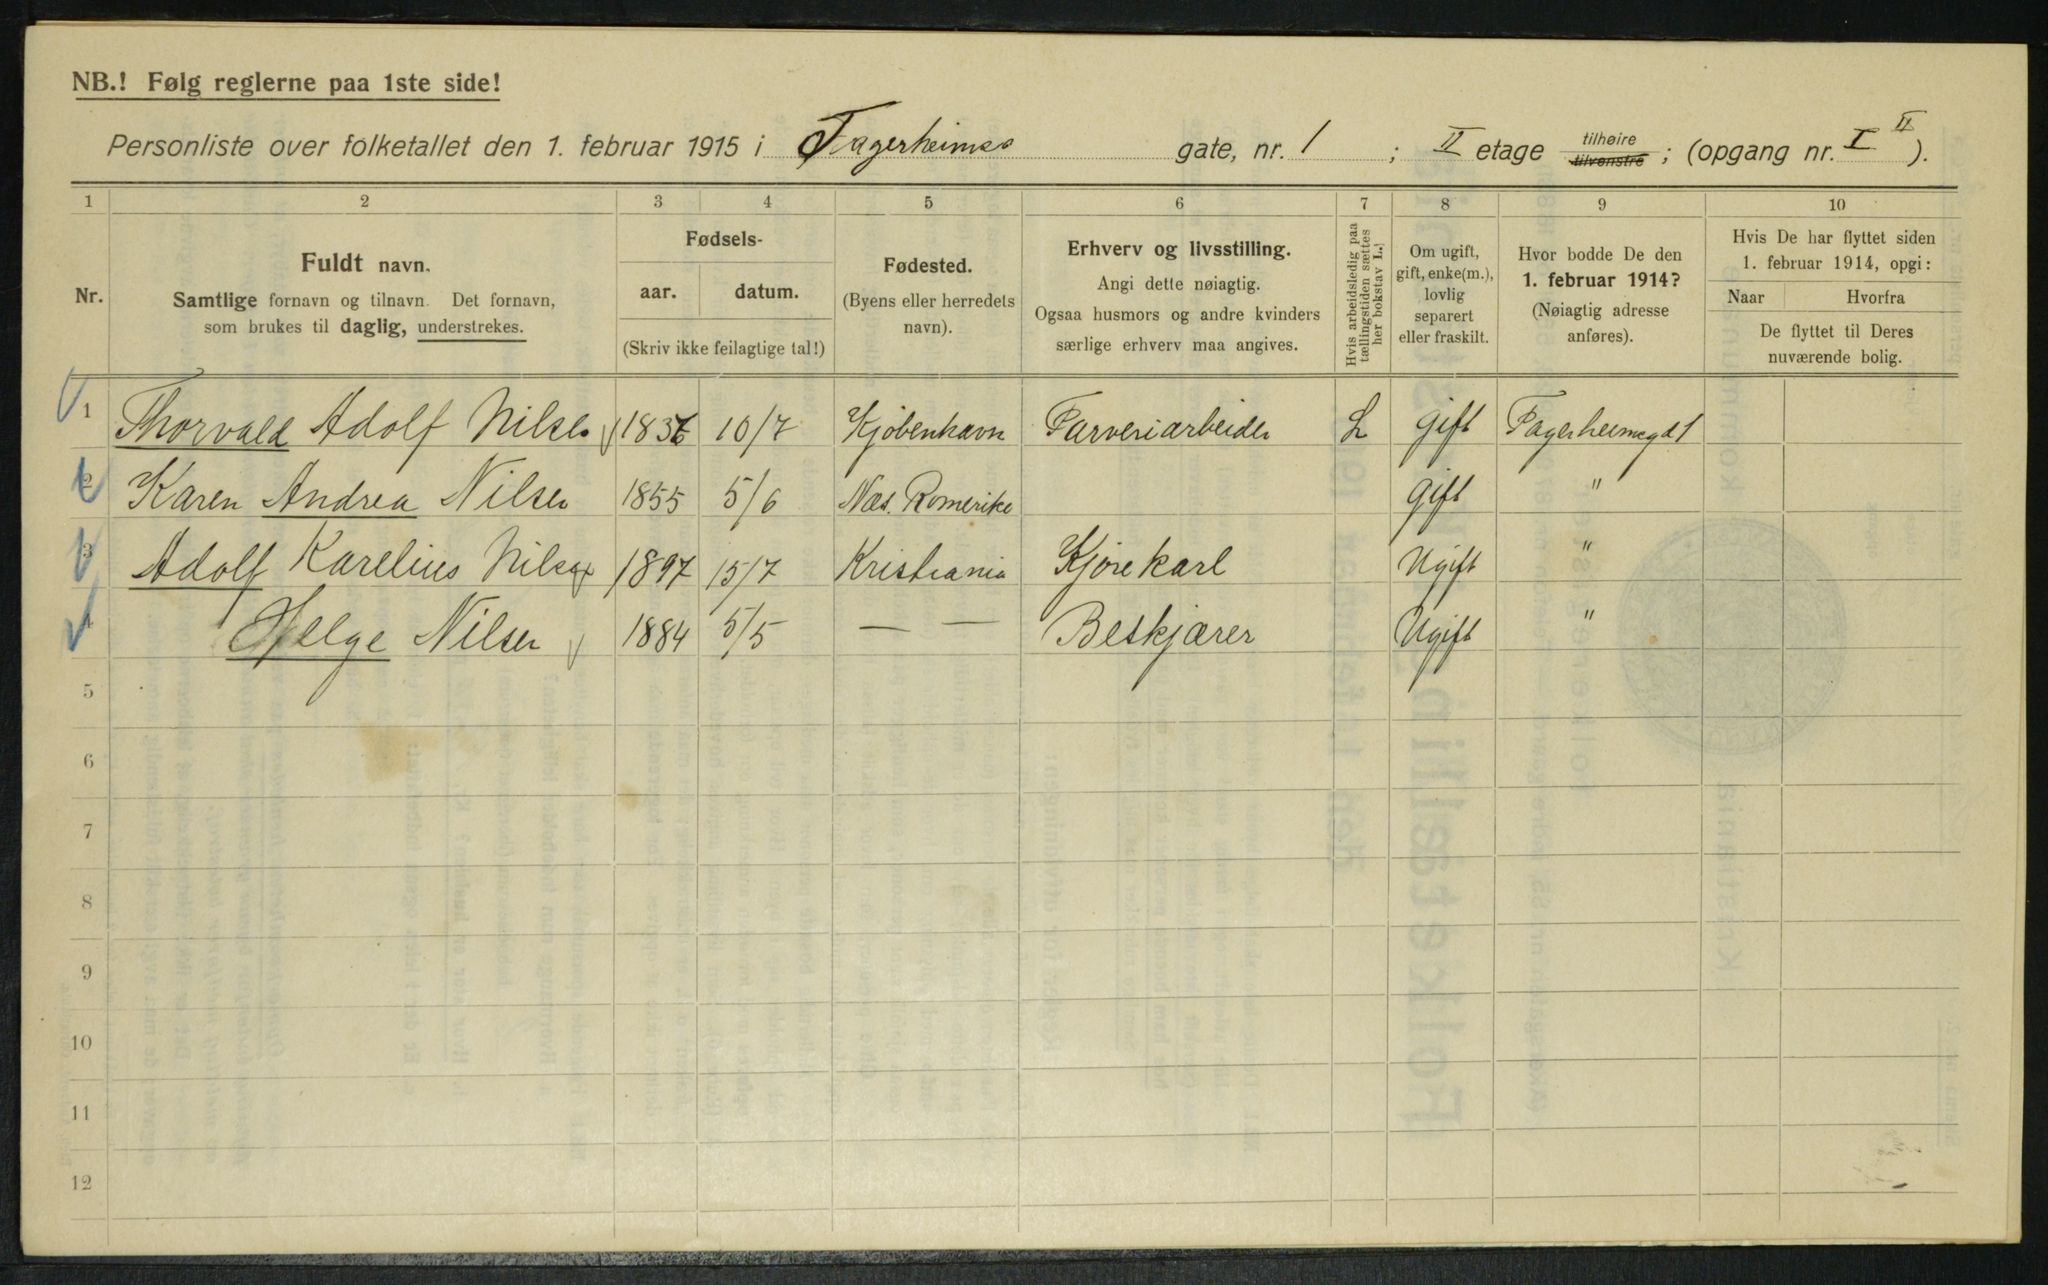 NB.! Følg reglerne paa 1ste side!
Personliste over folketallet den 1. februar 1915 i Fagerheims gate, nr. 1 ; II etage tilhøire tilvenstre ; (opgang nr. I II ).
1 2 3 4 5 6 7 8 9 10
Nr.
Fuldt navn.
Samtlige fornavn og tilnavn. Det fornavn,
som brukes til daglig, understrekes.
Fødsels-
aar. datum.
(Skriv ikke feilagtige tal!)
Fødested.
(Byens eller herredets
navn).
Erhverv og livsstilling.
Angi dette nøiagtig.
Ogsaa husmors og andre kvinders
særlige erhverv maa angives.
Hvis arbeidsledig paa
tællingstiden sættes
her bokstav L.
Om ugift,
gift, enke(m.),
lovlig
separert
eller fraskilt.
Hvor bodde De den
1. februar 1914?
(Nøiagtig adresse
anføres).
Hvis De har flyttet siden
1. februar 1914, opgi:
Naar Hvorfra
De flyttet til Deres
nuværende bolig.
1 Thorvald Adolf Nilsen 10/7 Kjøbenhavn Farveriarbeider L gift Fagerheimsgd 1
2 Karen Andrea Nilsen 1855 5/6 Næs. Romerike gift "
3 Adolf Karelius Nilsen 1897 15/7 Kristiania Kjørekarl Ugift "
4 Helge Nilsen 1884 5/5 — — Beskjærer Ugift "
5
6
7
8
9
10
11
12